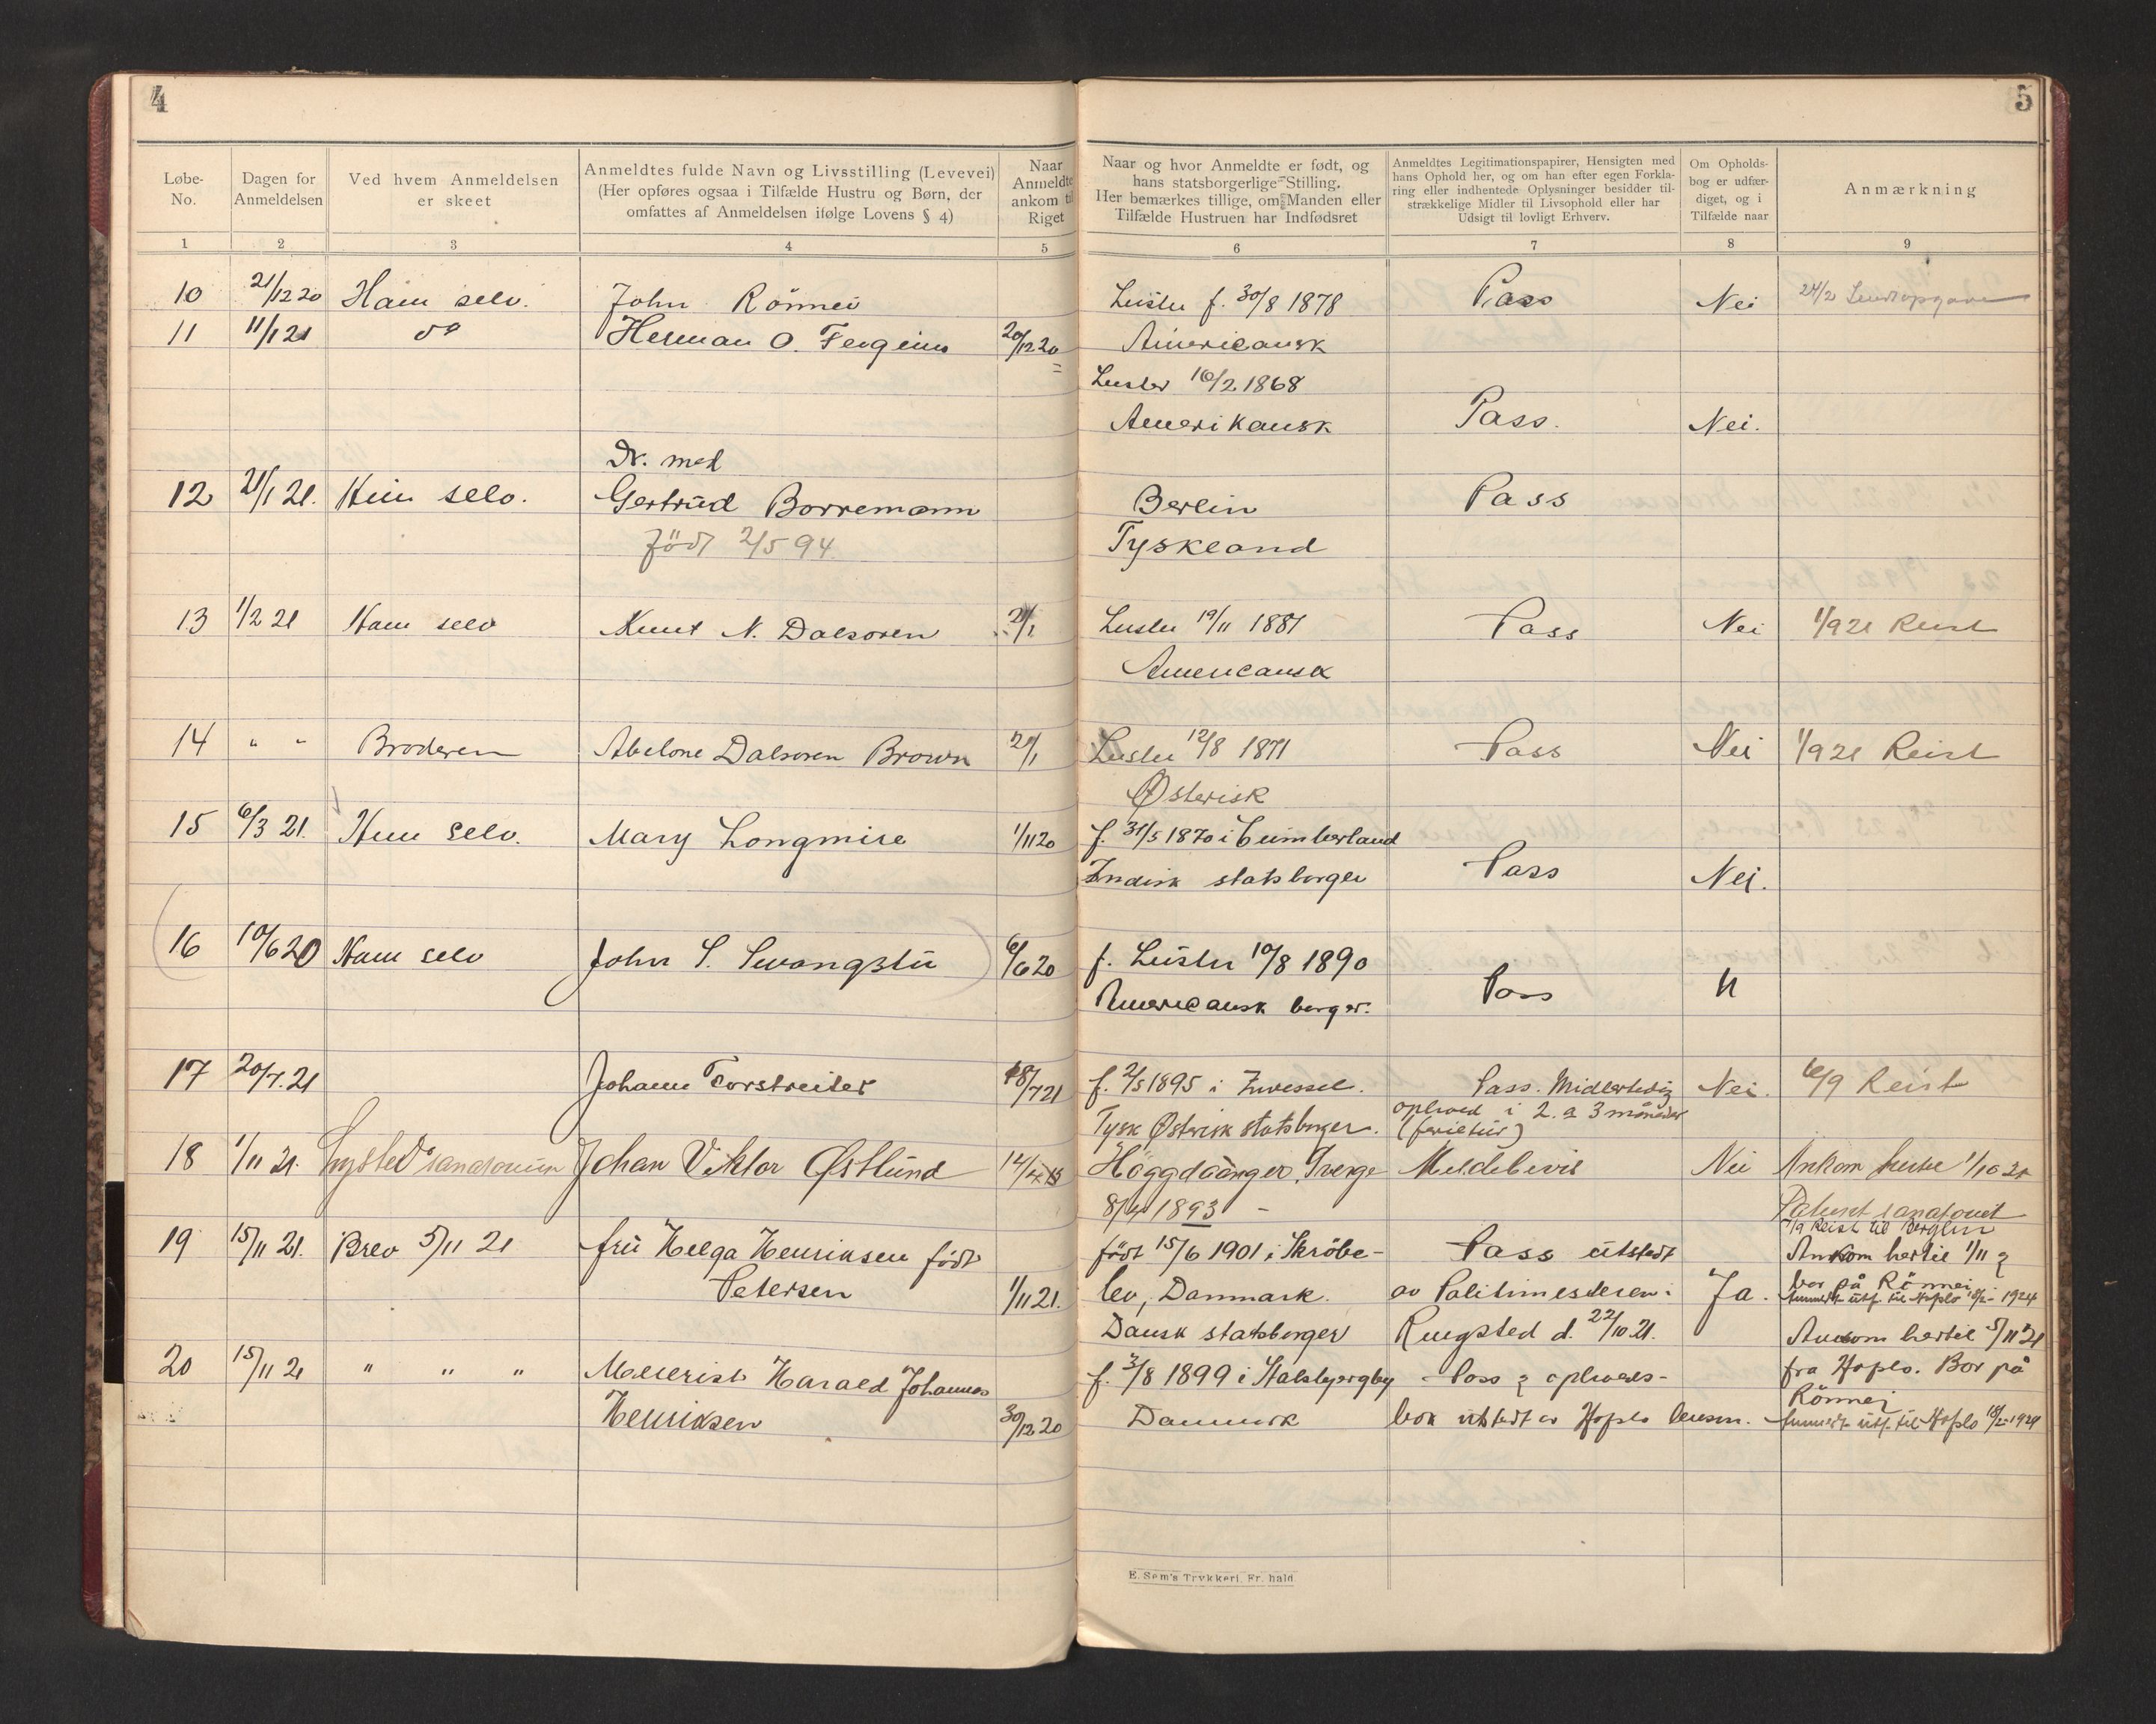 4
5
Løbe-No.
Dagen for Anmeldelsen
Ved hvem Anmeldelsen er skeet
Anmeldtes fulde Navn og Livsstilling (Levevei)
(Her opføres ogsaa i Tilfælde Hustru og Børn, der
omfattes af Anmeldelsen ifølge Lovens § 4)
Naar Anmeldte ankom til Riget
Naar og hvor Anmeldte er født, og
hans statsborgerlige Stilling.
Her bemærkes tillige, om Manden eller
Tilfælde Hustruen har Indfødsret
Anmeldtes Legitimationspapirer, Hensigten med
hans Ophold her, og om han efter egen Forkla-
ring eller indhentede Oplysninger besidder til-
strækkelige Midler til Livsophold eller har
Udsigt til lovligt Erhverv.
Om Opholds-
bog er udfær-
diget, og i
Tilfælde naar
Anmærkning
1 2 3 4 5 6 7 8 9
10 21/12 20 Ham selv. John Rönnei Luster f. 30/8 1878 Pass Nei 24/2
11 11/1 21 do Herman O. 20/12 20 Americansk
Luster 16/2 1868
Amerikansk Pass. Nei.
Dr. med
12 21/1 21. Hun selv. Gertrud Borremann Berlin Pass
född 2/5 94 Tyskland
13 1/2 21 Ham selv Knut N. Dalsoren 21/1 Luster 19/11 1881 Pass Nei 1/9 21 Reist
Americansk
14 " " Broderen Abelone Dalsoren Brown 21/1 Luster 12/8 1871 Pass Nei 1/9 21 Reist
Østerisk
15 6/3 21. Hun selv. Mary Longmire 1/11 20 f. 31/5 1870 i Cumberland
Indisk statsborger Pass Nei.
16 10/6 20 Ham selv John S. 6/6 20 f. Luster 10/8 1890
Americansk borger. Pass N
17 20/7. 21 Johann Forstreiter 18/7 21 f. 2/5 1895 i Pass. Midlertidig Nei. 6/9 Reist
Tysk Østerisk statsborger. ophold i 2. a 3 måneder
(ferietur)
18 1/11 21. Lyster sanatorium Johan Viktor Østlund 14/4 Höggdånger, Sverge Meldebevis Nei Ankom hertil 1/10 21
8/4 1893 - Patient sanatoriet
1/9 Reist til Bergen
19 15/11 21. Brev 5/11 21 fru Helga Henriksen född født 15/6 1901 i Skröbe- Pass utstedt Ankom hertil 1/11 &
Petersen 1/11 21. lev, Danmark. av Politimesteren i Ja. bor på Rönnei
utf. til Hoplo 18/2 - 1924
Dansk statsborger Ringsted d. 22/10 21. Ankom hertil 5/11 21
20 15/11 21 " " " Meierist Harald Johannes f. 3/8 1899 i Stalsbjergby Pass & opholds- fra Hoplo. Bor på
Rönnei
Henriksen 30/12 20 Danmark bok utstedt av Hoplo lensm. utf. til Hoplo 18/2 1924
E. Sem's Trykkeri, Fr.hald